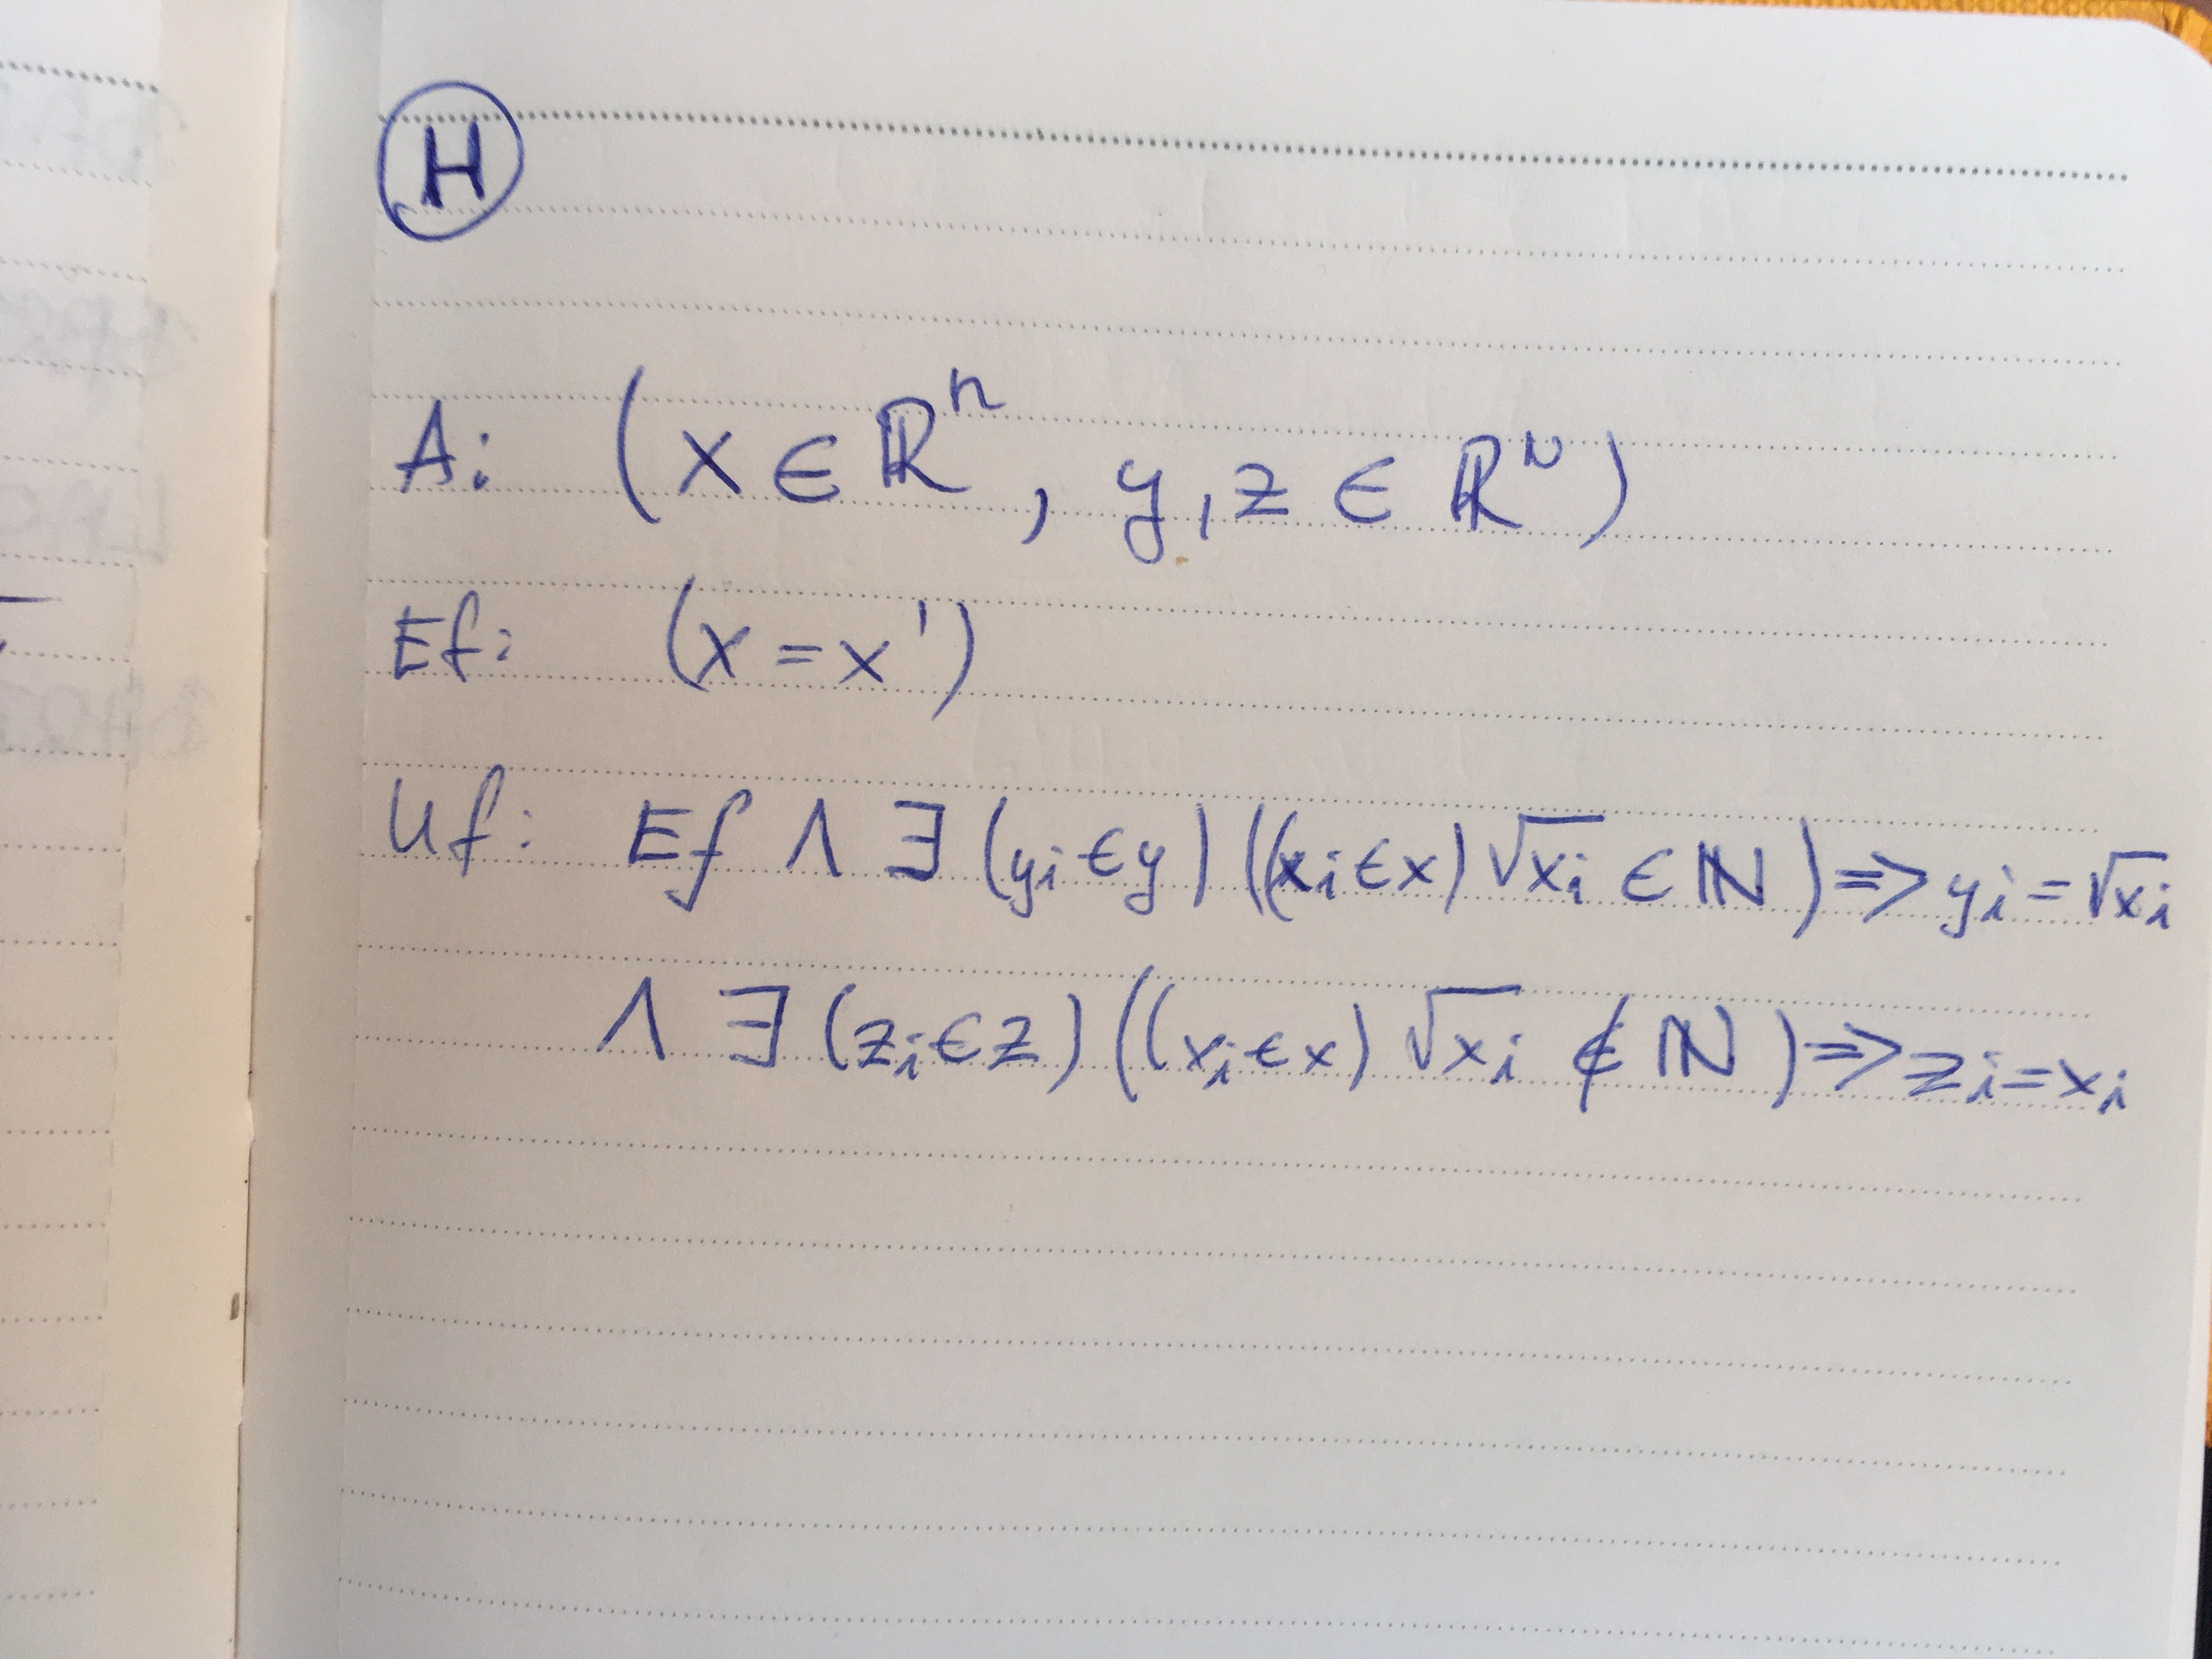 H
A: (x ∈ ℝⁿ, y, z ∈ ℝᴺ)
Ef: (x = x')
Uf: Ef ∧ ∃ (yᵢ ∈ y) ((xᵢ ∈ x) √xᵢ ∈ ℕ) => yᵢ = √xᵢ
∧ ∃ (zᵢ ∈ z) ((xᵢ ∈ x) √xᵢ ∉ ℕ) => zᵢ = xᵢ